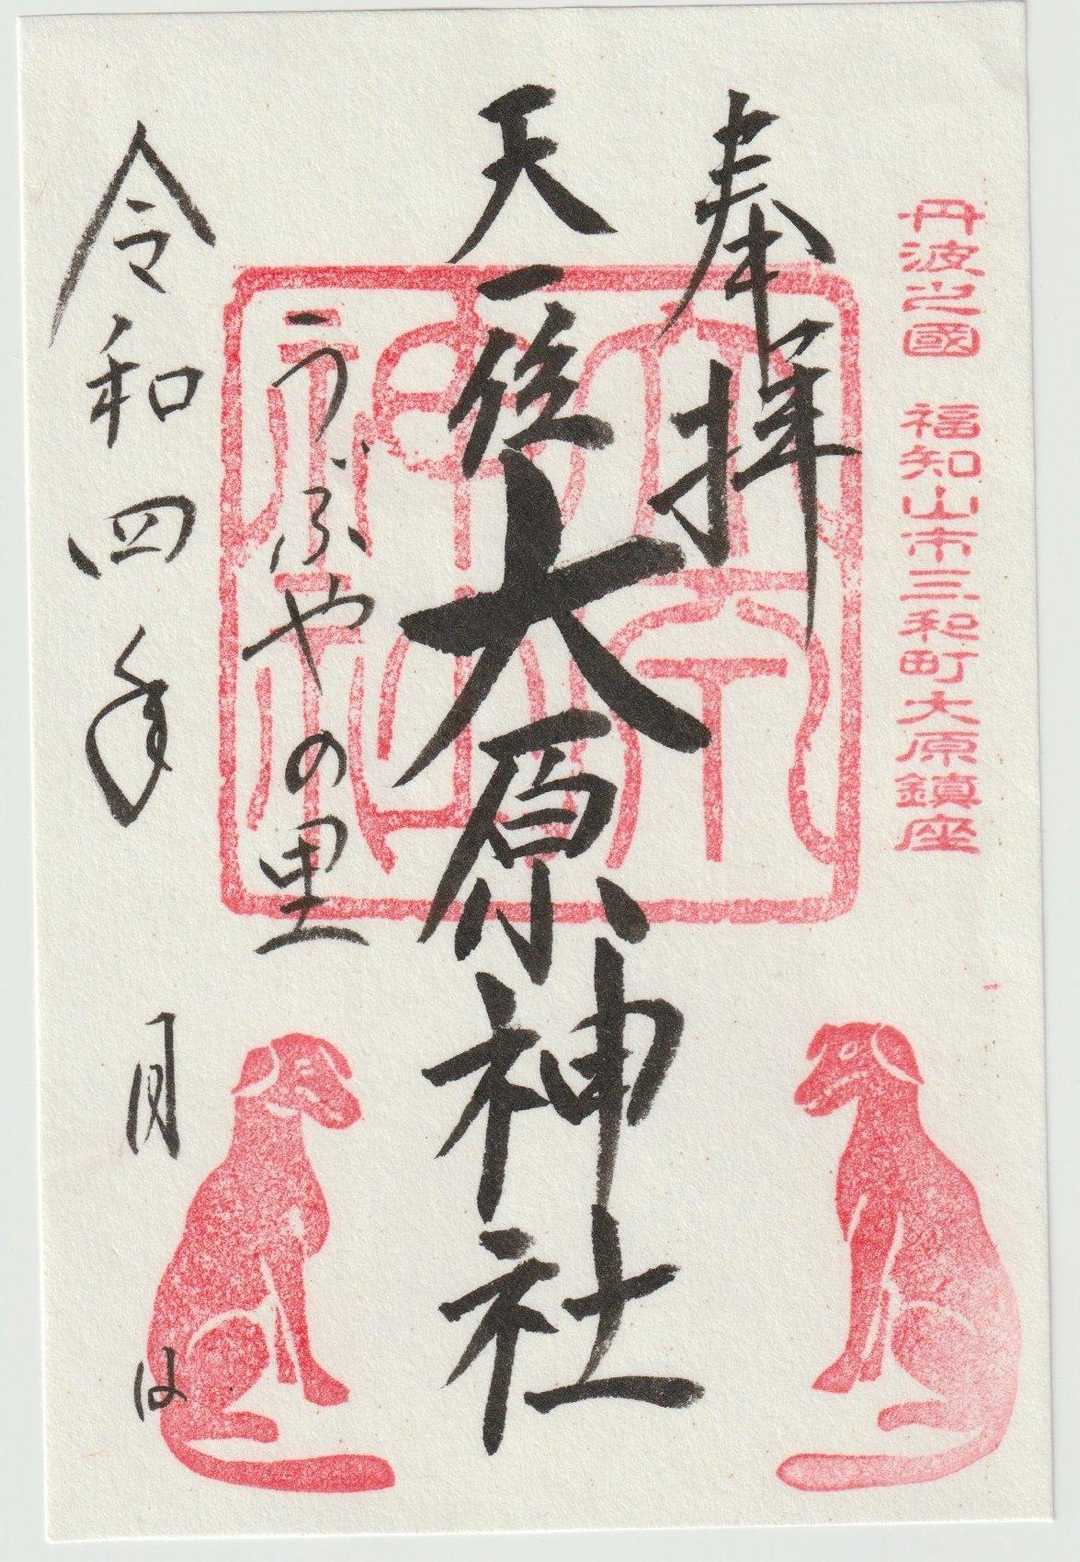 丹波之國 福知山市三和町大原鎮座
奉拝
天一位大原神社
うぶやの里
令和四年 月 日